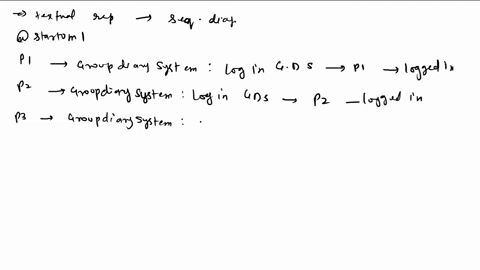 => textual rep → seq. diag.
@ startuml
P1 → Groupdiary System : Log in G.D S → P1 → logged in
P2 → Groupdiary System : Log in GDs → P2 — logged in
P3 → Groupdiary System : .